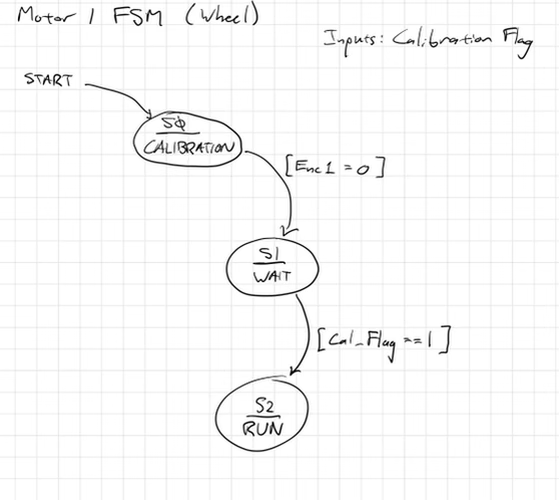 Motor 1 FSM (Wheel)
Inputs: Calibration Flag
START
S0
CALIBRATION
[Enc1 = 0]
S1
WAIT
[Cal_Flag == 1]
S2
RUN